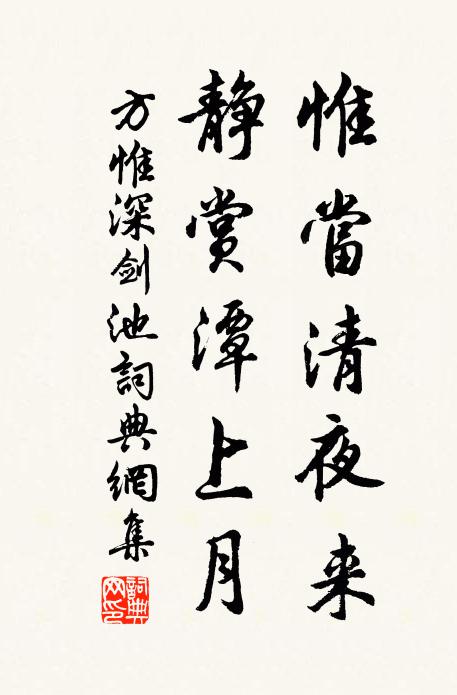 惟當清夜来
静賞潭上月
方惟深剑池詞典網集
詞典网印